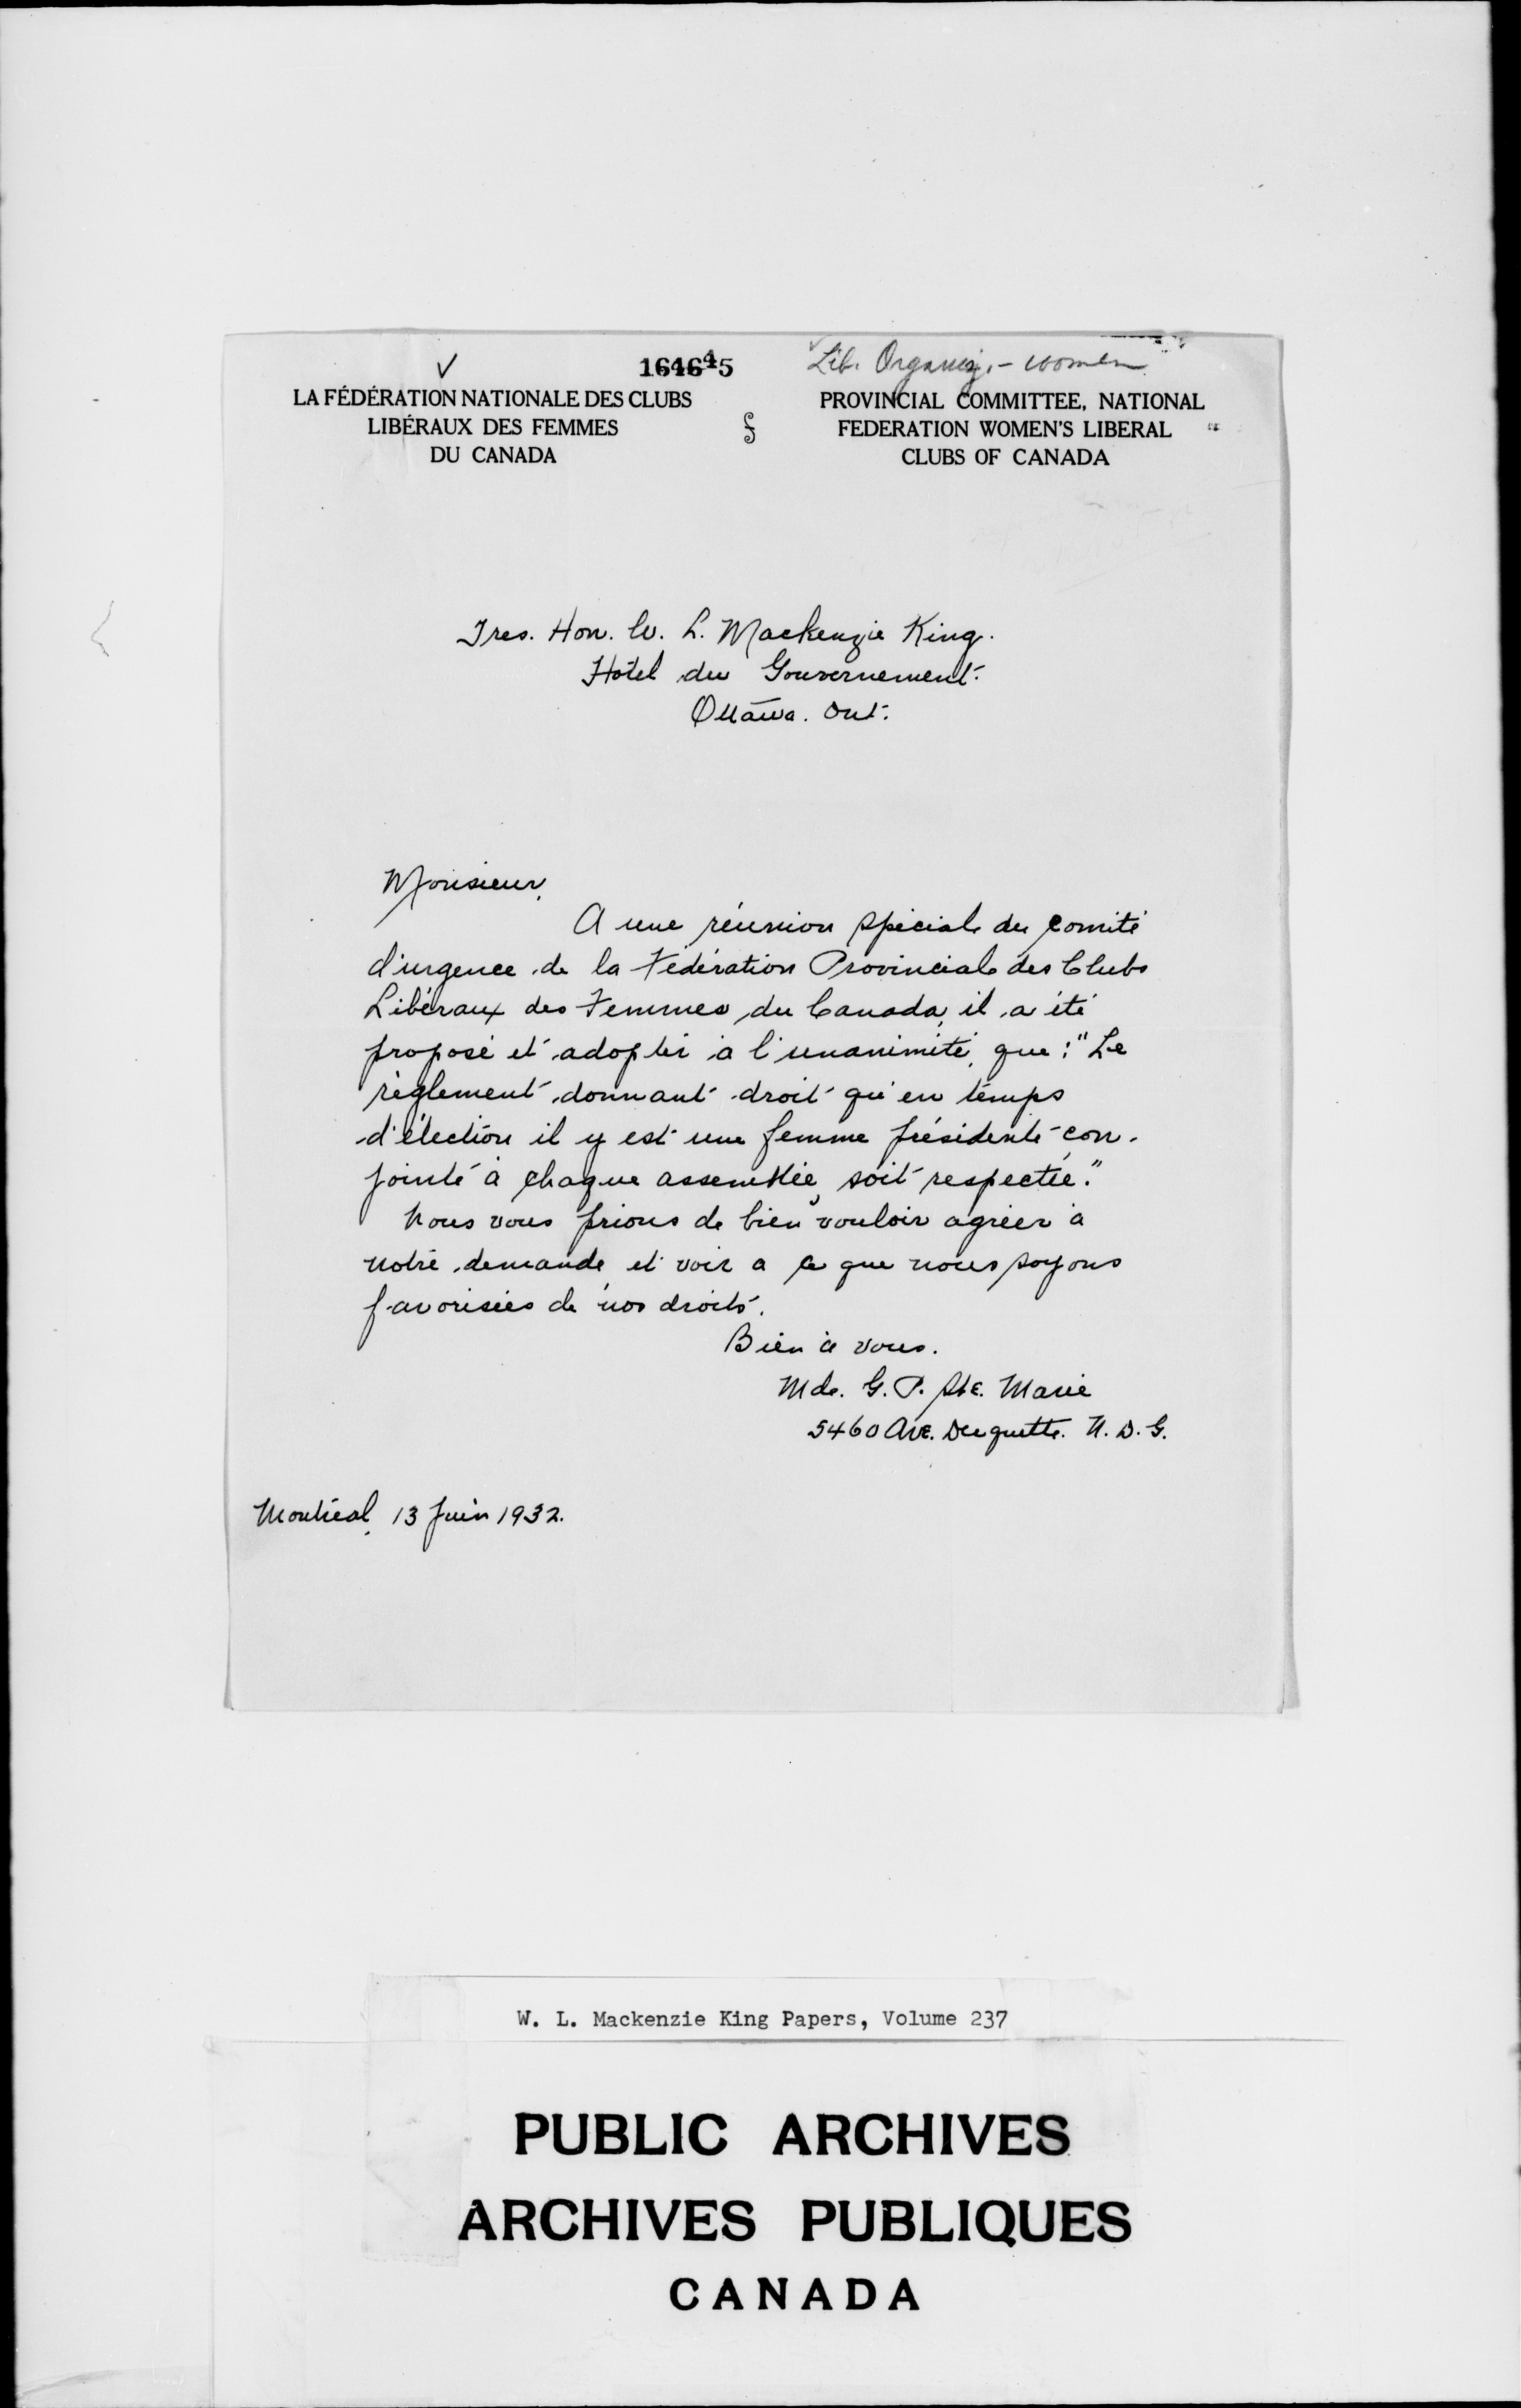 ✓ 164645 Lib. Organiz. - women
LA FÉDÉRATION NATIONALE DES CLUBS
LIBÉRAUX DES FEMMES
DU CANADA
PROVINCIAL COMMITTEE, NATIONAL
FEDERATION WOMEN'S LIBERAL
CLUBS OF CANADA
Tres. Hon. W. L. Mackenzie King.
Hôtel du Gouvernement.
Ottawa. Ont.
Monsieur,
A une réunion spéciale du comité
d'urgence de la Fédération Provinciale des Clubs
Libéraux des Femmes du Canada, il a été
proposé et adopter à l'unanimité, que: "Le
règlement donnant droit qu'en temps
d'élection il y est une femme présidente con-
jointe à chaque assemblée, soit respectée."
Nous vous prions de bien vouloir agréer à
notre demande et voir a ce que nous soyons
favorisées de nos droits.
Bien à vous.
Mde. G. P. Ste. Marie
5460 Ave. Duquette. N. D. G.
Montréal, 13 Juin 1932.
W. L. Mackenzie King Papers, Volume 237
PUBLIC ARCHIVES
ARCHIVES PUBLIQUES
CANADA